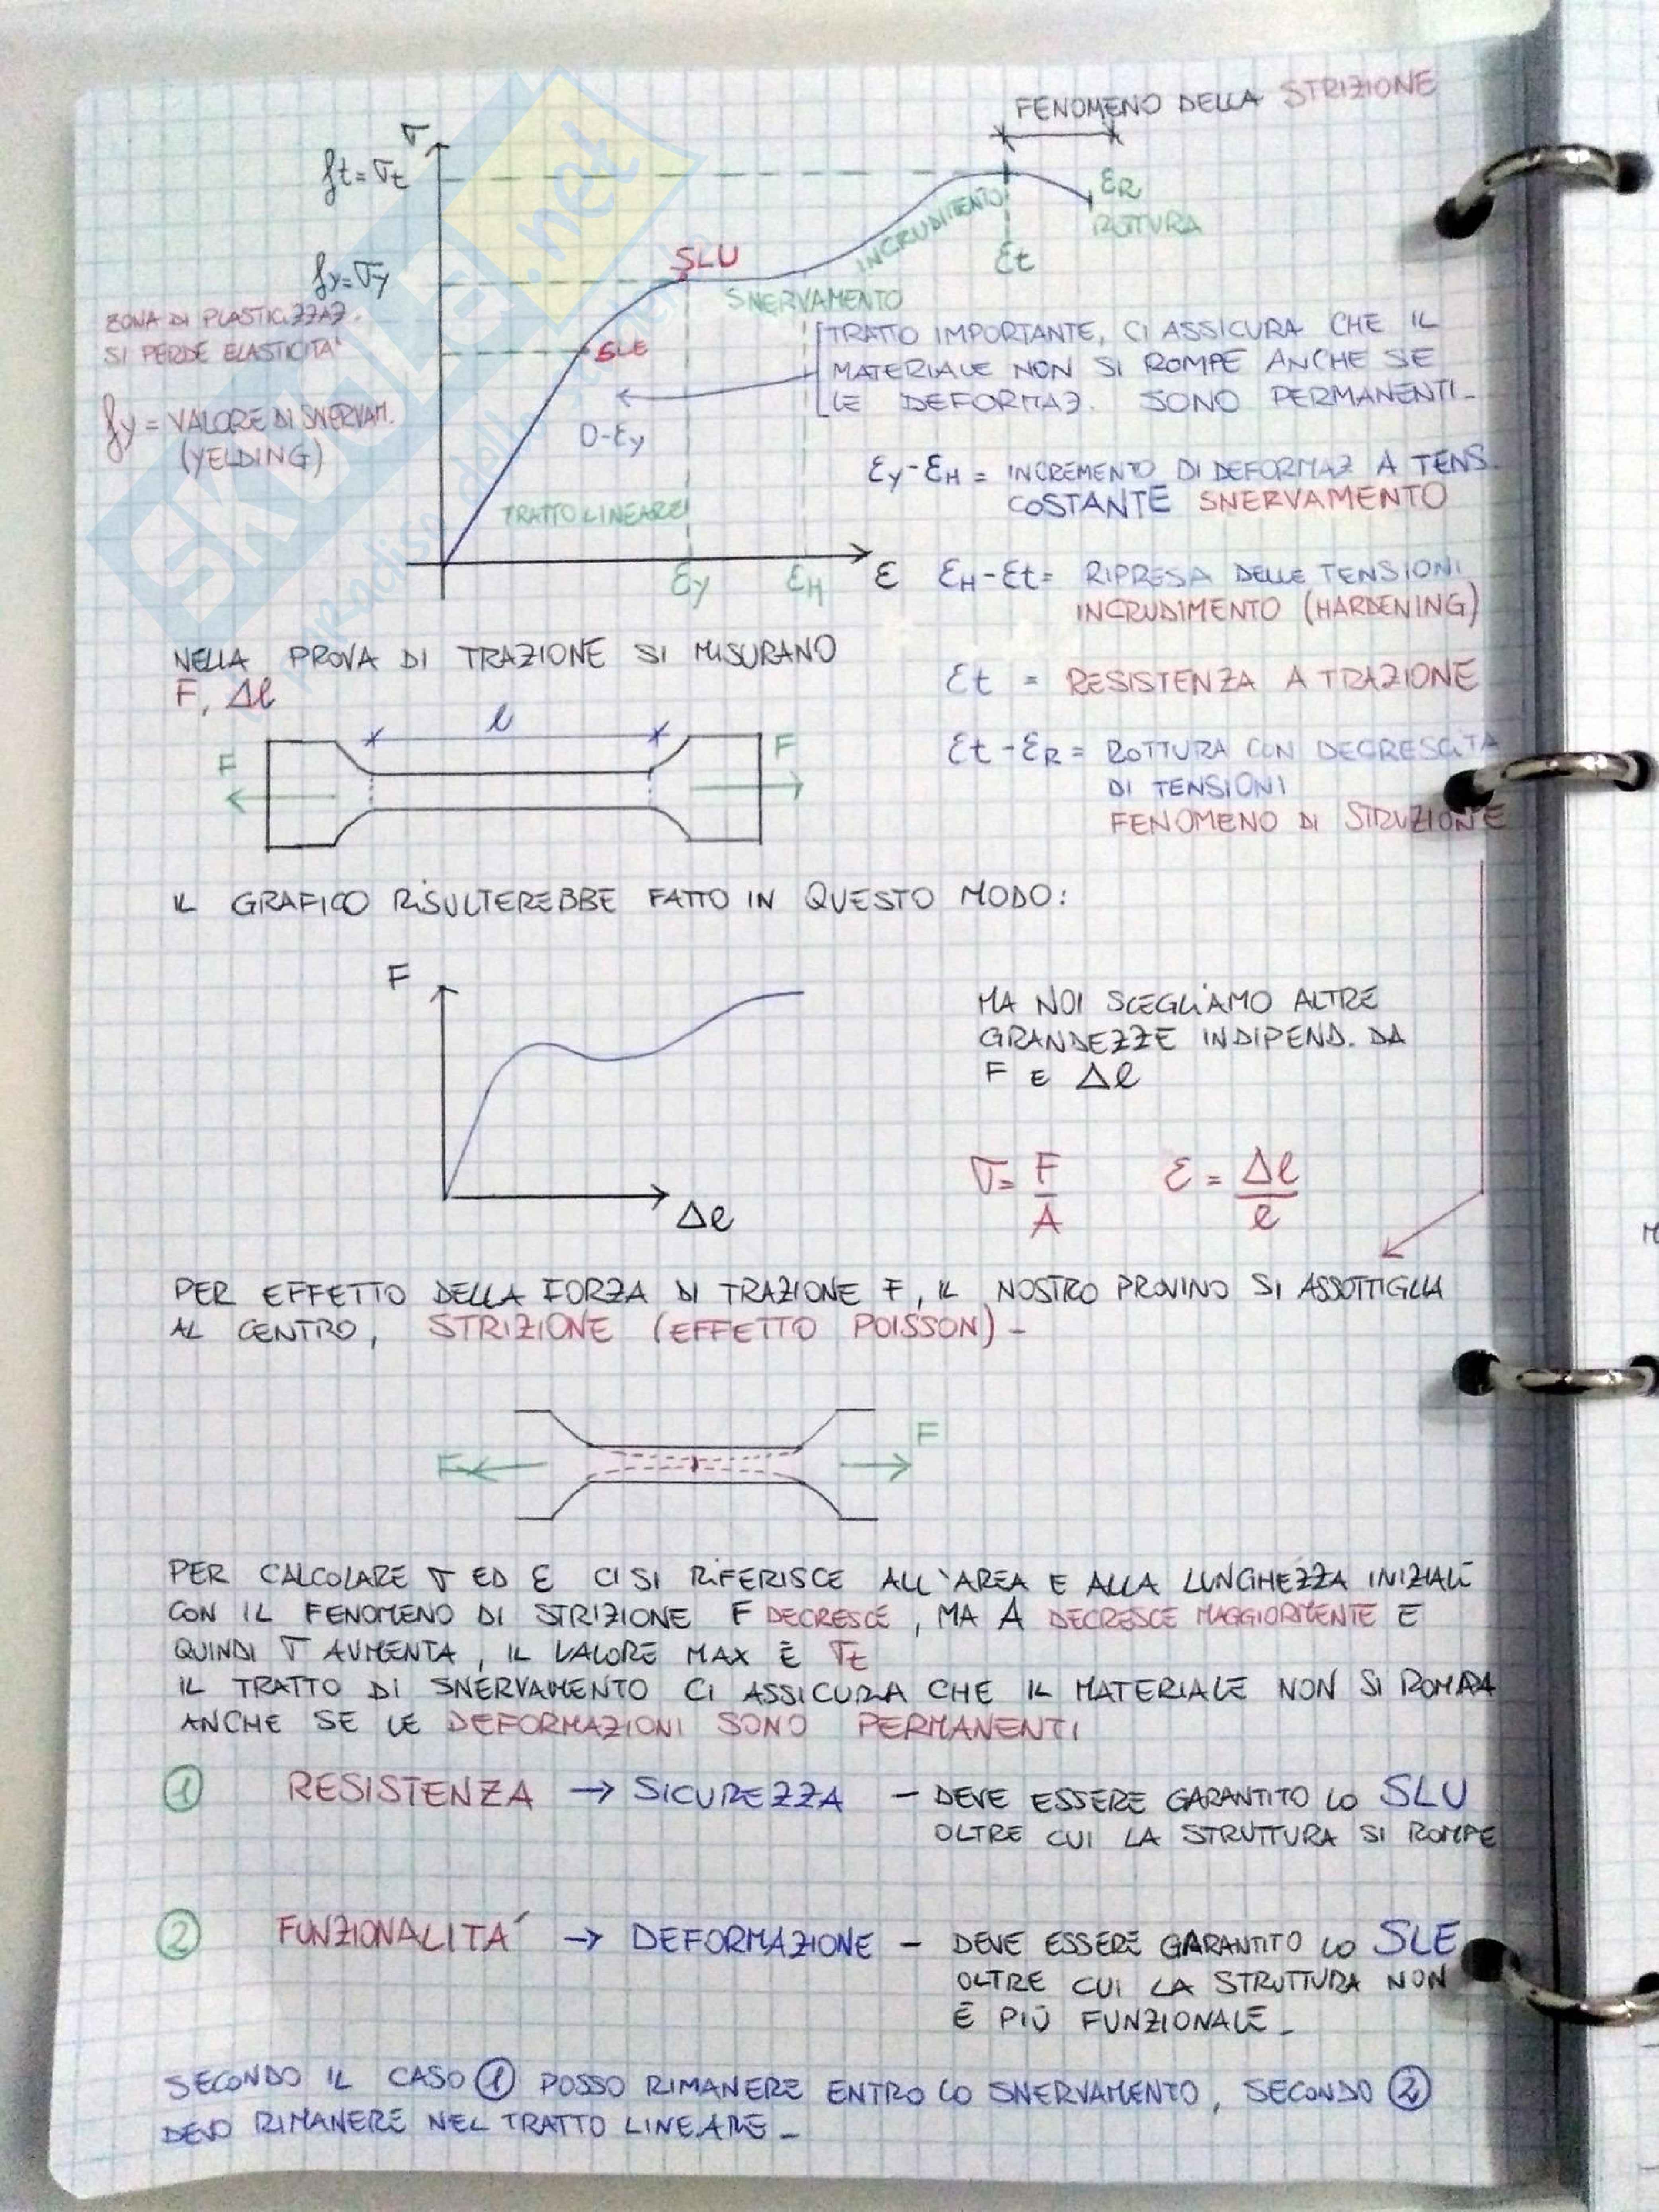 FENOMENO DELLA STRIZIONE
σ
ft = σt
fy = σy
SLU
SLE
INCRUDIMENTO
εR
ROTTURA
εt
SNERVAMENTO
ZONA DI PLASTICIZZAZ.
SI PERDE ELASTICITA'
fy = VALORE DI SNERVAM.
(YELDING)
TRATTO IMPORTANTE, CI ASSICURA CHE IL
MATERIALE NON SI ROMPE ANCHE SE
LE DEFORMAZ. SONO PERMANENTI-
O-εy
TRATTO LINEARE
εy
εH
ε
εy-εH = INCREMENTO DI DEFORMAZ A TENS.
COSTANTE SNERVAMENTO
εH-εt = RIPRESA DELLE TENSIONI
INCRUDIMENTO (HARDENING)
εt = RESISTENZA A TRAZIONE
εt-εR = ROTTURA CON DECRESCITA
DI TENSIONI
FENOMENO DI STRUZIONE
NELLA PROVA DI TRAZIONE SI MISURANO
F, Δl
l
F
F
IL GRAFICO RISULTEREBBE FATTO IN QUESTO MODO:
F
Δl
MA NOI SCEGLIAMO ALTRE
GRANDEZZE INDIPEND. DA
F E Δl
σ = F/A ε = Δl/l
PER EFFETTO DELLA FORZA DI TRAZIONE F, IL NOSTRO PROVINO SI ASSOTTIGLIA
AL CENTRO, STRIZIONE (EFFETTO POISSON)-
F
F
PER CALCOLARE σ ED ε CI SI RIFERISCE ALL'AREA E ALLA LUNGHEZZA INIZIALE
CON IL FENOMENO DI STRIZIONE F DECRESCE, MA A DECRESCE MAGGIORMENTE E
QUINDI σ AUMENTA, IL VALORE MAX È σt
IL TRATTO DI SNERVAMENTO CI ASSICURA CHE IL MATERIALE NON SI ROMPA
ANCHE SE LE DEFORMAZIONI SONO PERMANENTI
① RESISTENZA → SICUREZZA - DEVE ESSERE GARANTITO LO SLU
OLTRE CUI LA STRUTTURA SI ROMPE
② FUNZIONALITA' → DEFORMAZIONE - DEVE ESSERE GARANTITO LO SLE
OLTRE CUI LA STRUTTURA NON
È PIÙ FUNZIONALE-
SECONDO IL CASO ① POSSO RIMANERE ENTRO LO SNERVAMENTO, SECONDO ②
DEVO RIMANERE NEL TRATTO LINEARE-
SKUOLA.net